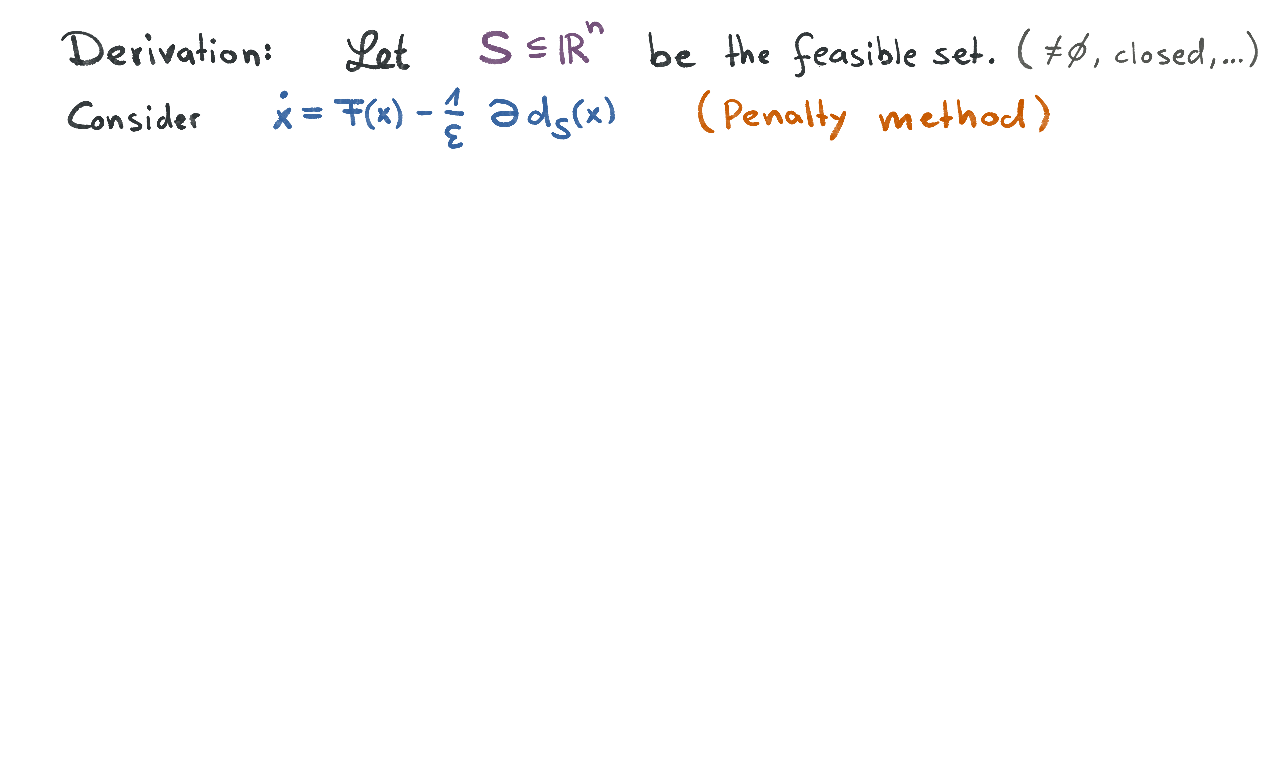 Derivation: Let S ⊆ ℝⁿ be the feasible set. (≠∅, closed, ...)
Consider ẋ = F(x) - 1/ε ∂d_S(x) (Penalty method)